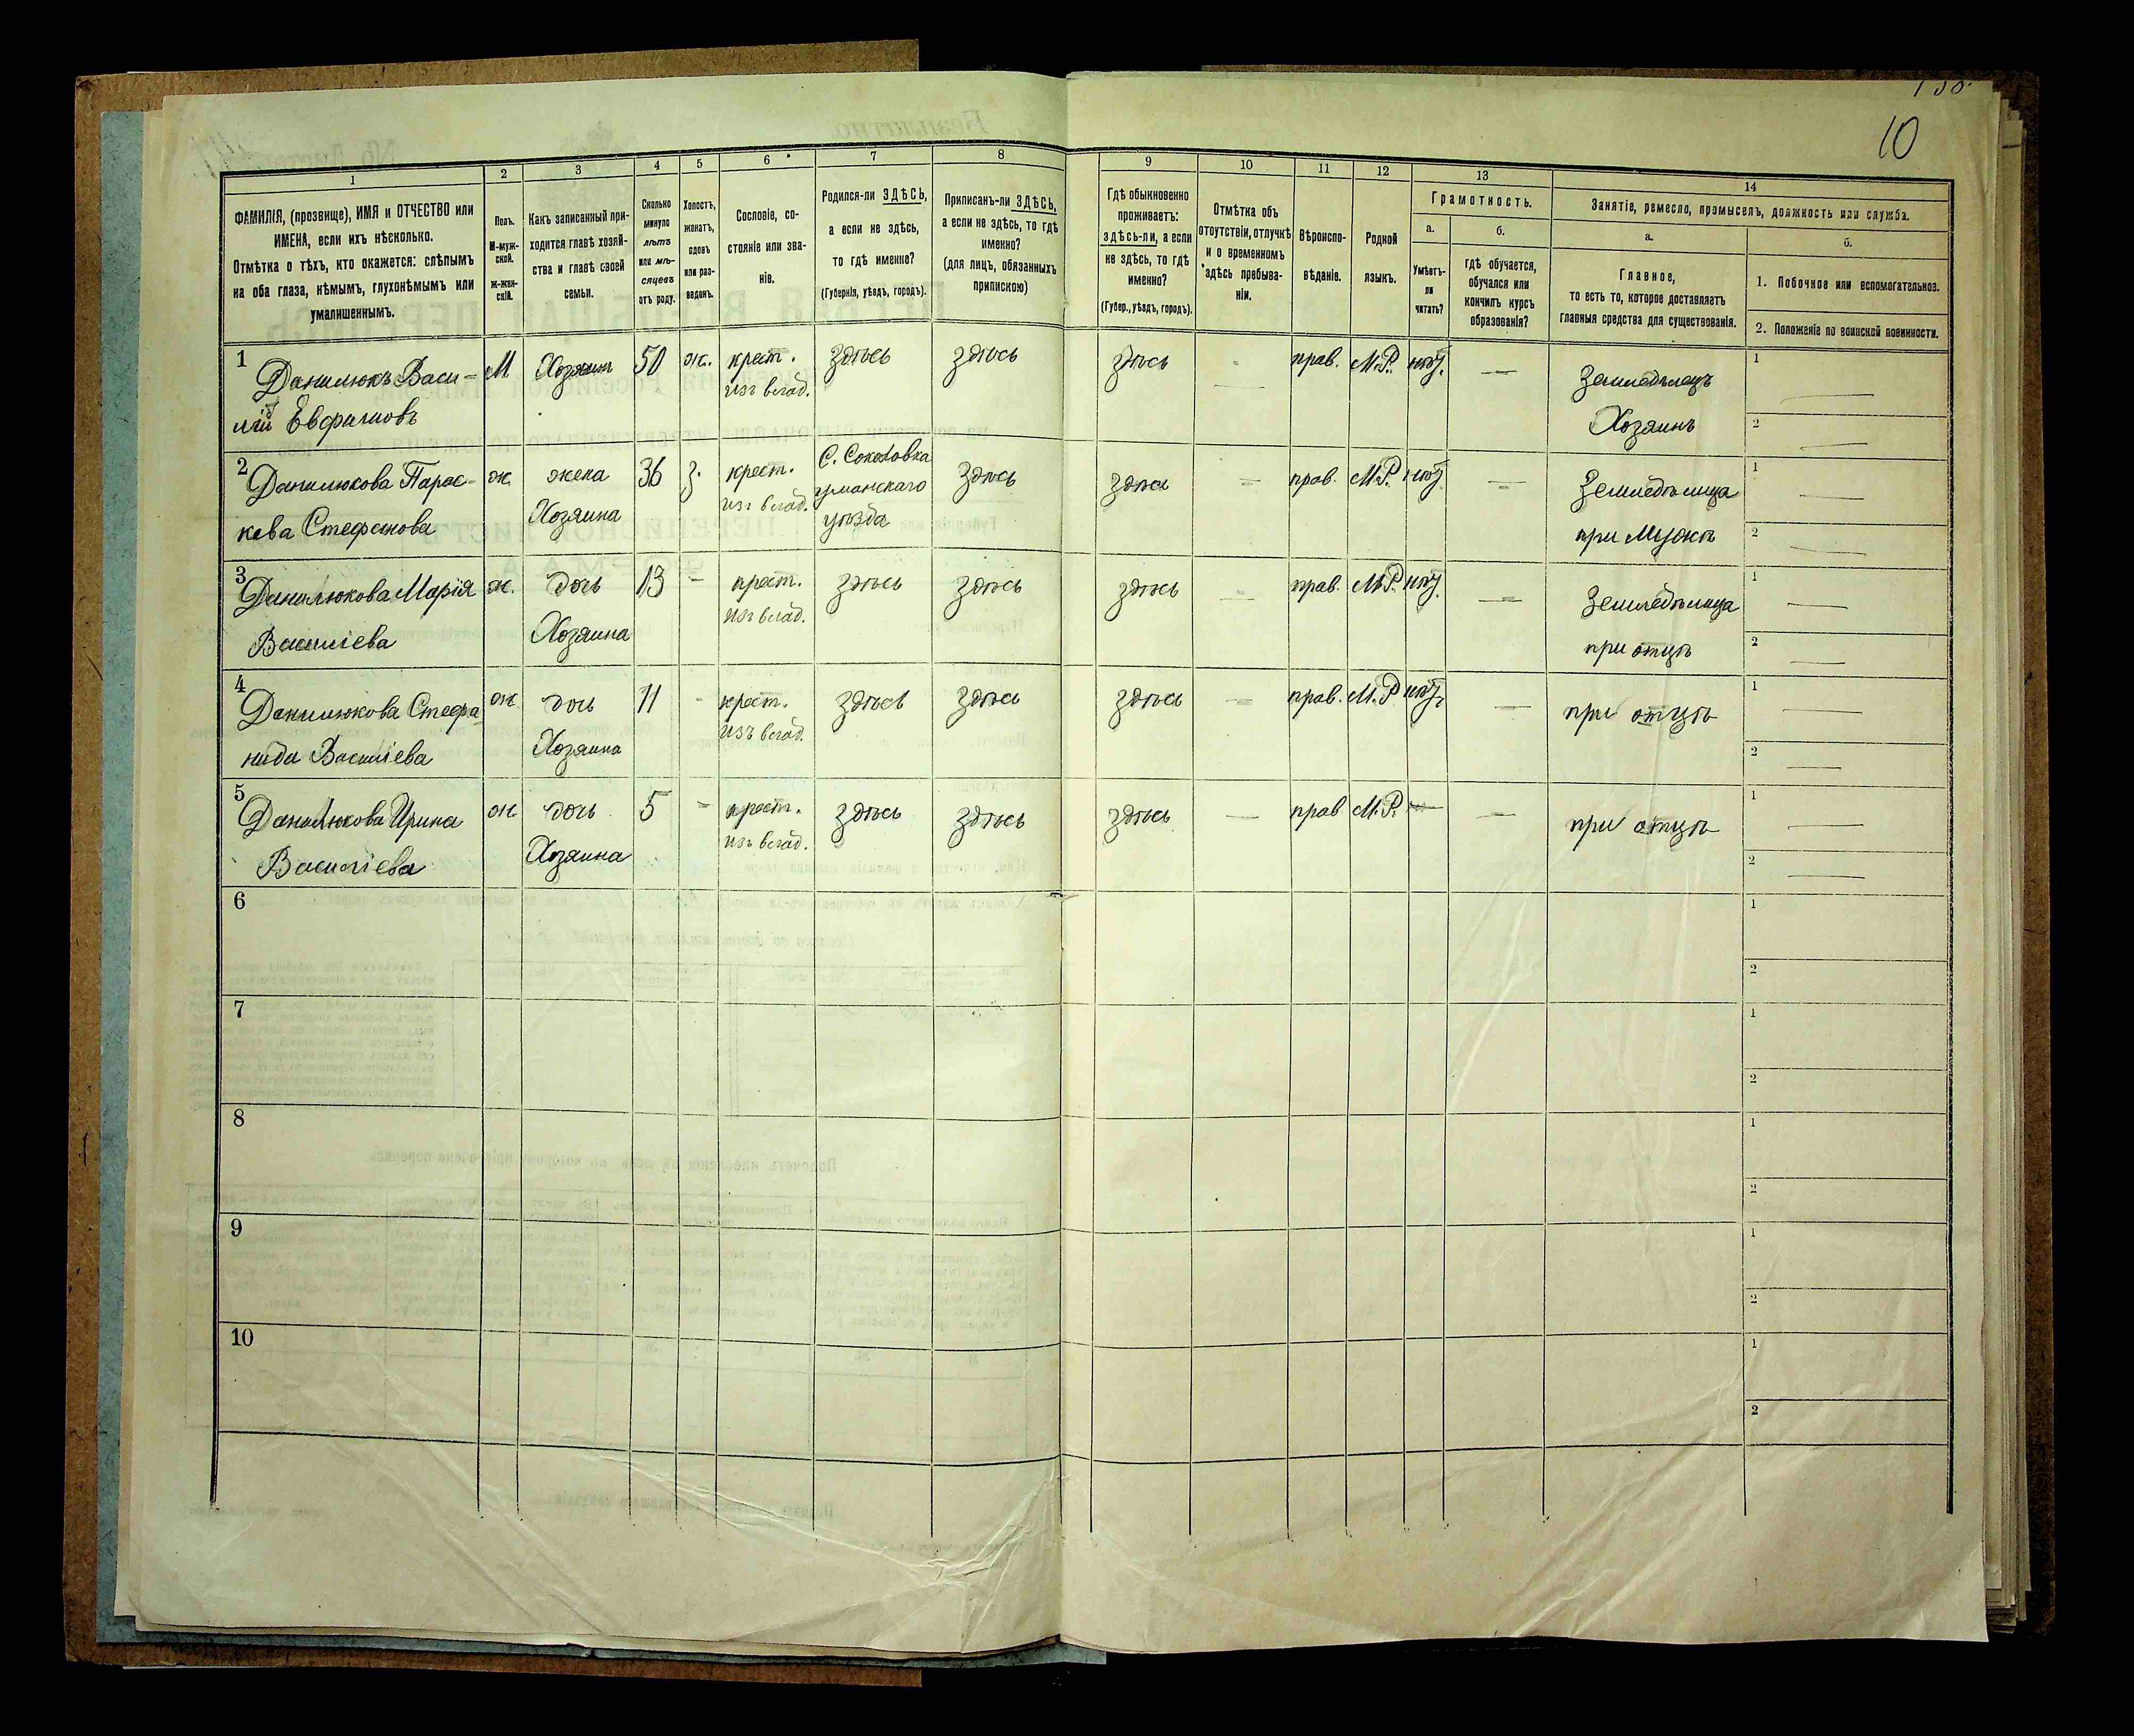 10
1
2
3
4
5
6
7
8
9
10
11
12
13
14
ФАМИЛІЯ, (прозвище), ИМЯ и ОТЧЕСТВО или
ИМЕНА, если ихъ нѣсколько.
Отмѣтка о тѣхъ, кто окажется: слѣпымъ
на оба глаза, нѣмымъ, глухонѣмымъ или
умалишеннымъ.
Полъ.
М-муж-
ской.
ж-жен-
скій.
Какъ записанный при-
ходится главѣ хозяй-
ства и главѣ своей
семьи.
Сколько
минуло
лѣтъ
или мѣ-
сяцевъ
отъ роду.
Холостъ,
женатъ,
вдовъ
или раз-
веденъ.
Сословіе, со-
стояніе или зва-
ніе.
Родился-ли ЗДѢСЬ,
а если не здѣсь,
то гдѣ именно?
(Губернія, уѣздъ, городъ).
Приписанъ-ли ЗДѢСЬ,
а если не здѣсь, то гдѣ
именно?
(для лицъ, обязанныхъ
припискою)
Гдѣ обыкновенно
проживаетъ:
здѣсь-ли, а если
не здѣсь, то гдѣ
именно?
(Губер., уѣздъ, городъ).
Отмѣтка объ
отсутствіи, отлучкѣ
и о временномъ
здѣсь пребыва-
ніи.
Вѣроиспо-
вѣданіе.
Родной
языкъ.
Грамотность.
а.
Умѣетъ-
ли
читать?
б.
гдѣ обучается,
обучался или
кончилъ курсъ
образованія?
Занятіе, ремесло, промыселъ, должность или служба.
а.
Главное,
то есть то, которое доставляетъ
главныя средства для существованія.
б.
1. Побочное или вспомогательное.
2. Положеніе по воинской повинности.
1 Данилюкъ Васи- М Хозяинъ 50 ж. крест. здѣсь здѣсь здѣсь - прав. М.Р. нѣтъ. — Земледѣлецъ 1 —
лій Евфимовъ изъ влад. Хозяинъ 2 —
2 Данилюкова Парас- ж жена 36 з. крест. С. Соколовка здѣсь здѣсь — прав. М.Р. нѣтъ — Земледѣлица 1 —
кева Стефанова Хозяина изъ влад. уманскаго уѣзда при Мужѣ 2 —
3 Данилюкова Марія ж. дочь 13 - крест. здѣсь здѣсь здѣсь — прав. М.Р. нѣтъ. — Земледѣлица 1 —
Василіева Хозяина изъ влад. при отцѣ 2 —
4 Данилюкова Стефа ж. дочь 11 - крест. здѣсь здѣсь здѣсь — прав. М.Р нѣтъ. — при отцѣ 1 —
нида Василіева Хозяина изъ влад. 2 —
5 Данилюкова Ирина ж. дочь 5 - крест. здѣсь здѣсь здѣсь — прав М.Р. — — при отцѣ 1 —
Василіева Хозяина изъ влад. 2 —
6 1
2
7 1
2
8 1
2
9 1
2
10 1
2